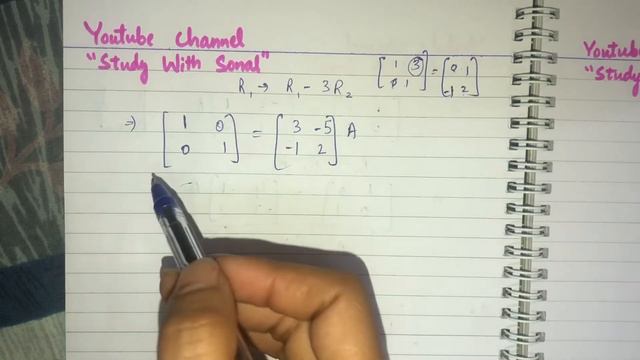 Youtube Channel
"Study With Sonal"
[1 3; 0 1] = [0 1; -1 2]
R₁ → R₁ - 3R₂
⇒ [1 0; 0 1] = [3 -5; -1 2] A
Youtube
"Study